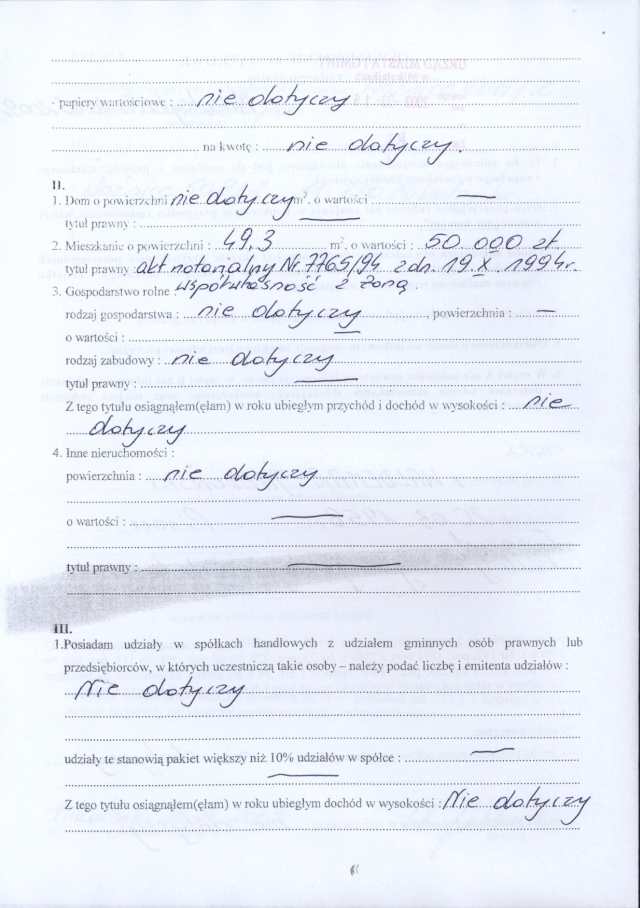 - papiery wartościowe : nie dotyczy
na kwotę : nie dotyczy.
II.
1. Dom o powierzchni nie dotyczy m², o wartości —
tytuł prawny : —
2. Mieszkanie o powierzchni : 49,3 m², o wartości : 50 000 zł.
tytuł prawny : akt notarialny Nr. 7765/94 z dn. 19.X.1994r.
współwłasność z żoną.
3. Gospodarstwo rolne :
rodzaj gospodarstwa : nie dotyczy, powierzchnia : —
o wartości : —
rodzaj zabudowy : nie dotyczy
tytuł prawny : —
Z tego tytułu osiągnąłem(ęłam) w roku ubiegłym przychód i dochód w wysokości : nie
dotyczy
4. Inne nieruchomości :
powierzchnia : nie dotyczy
o wartości : —
tytuł prawny : —
III.
1.Posiadam udziały w spółkach handlowych z udziałem gminnych osób prawnych lub
przedsiębiorców, w których uczestniczą takie osoby – należy podać liczbę i emitenta udziałów :
Nie dotyczy
udziały te stanowią pakiet większy niż 10% udziałów w spółce : —
—
Z tego tytułu osiągnąłem(ęłam) w roku ubiegłym dochód w wysokości : Nie dotyczy